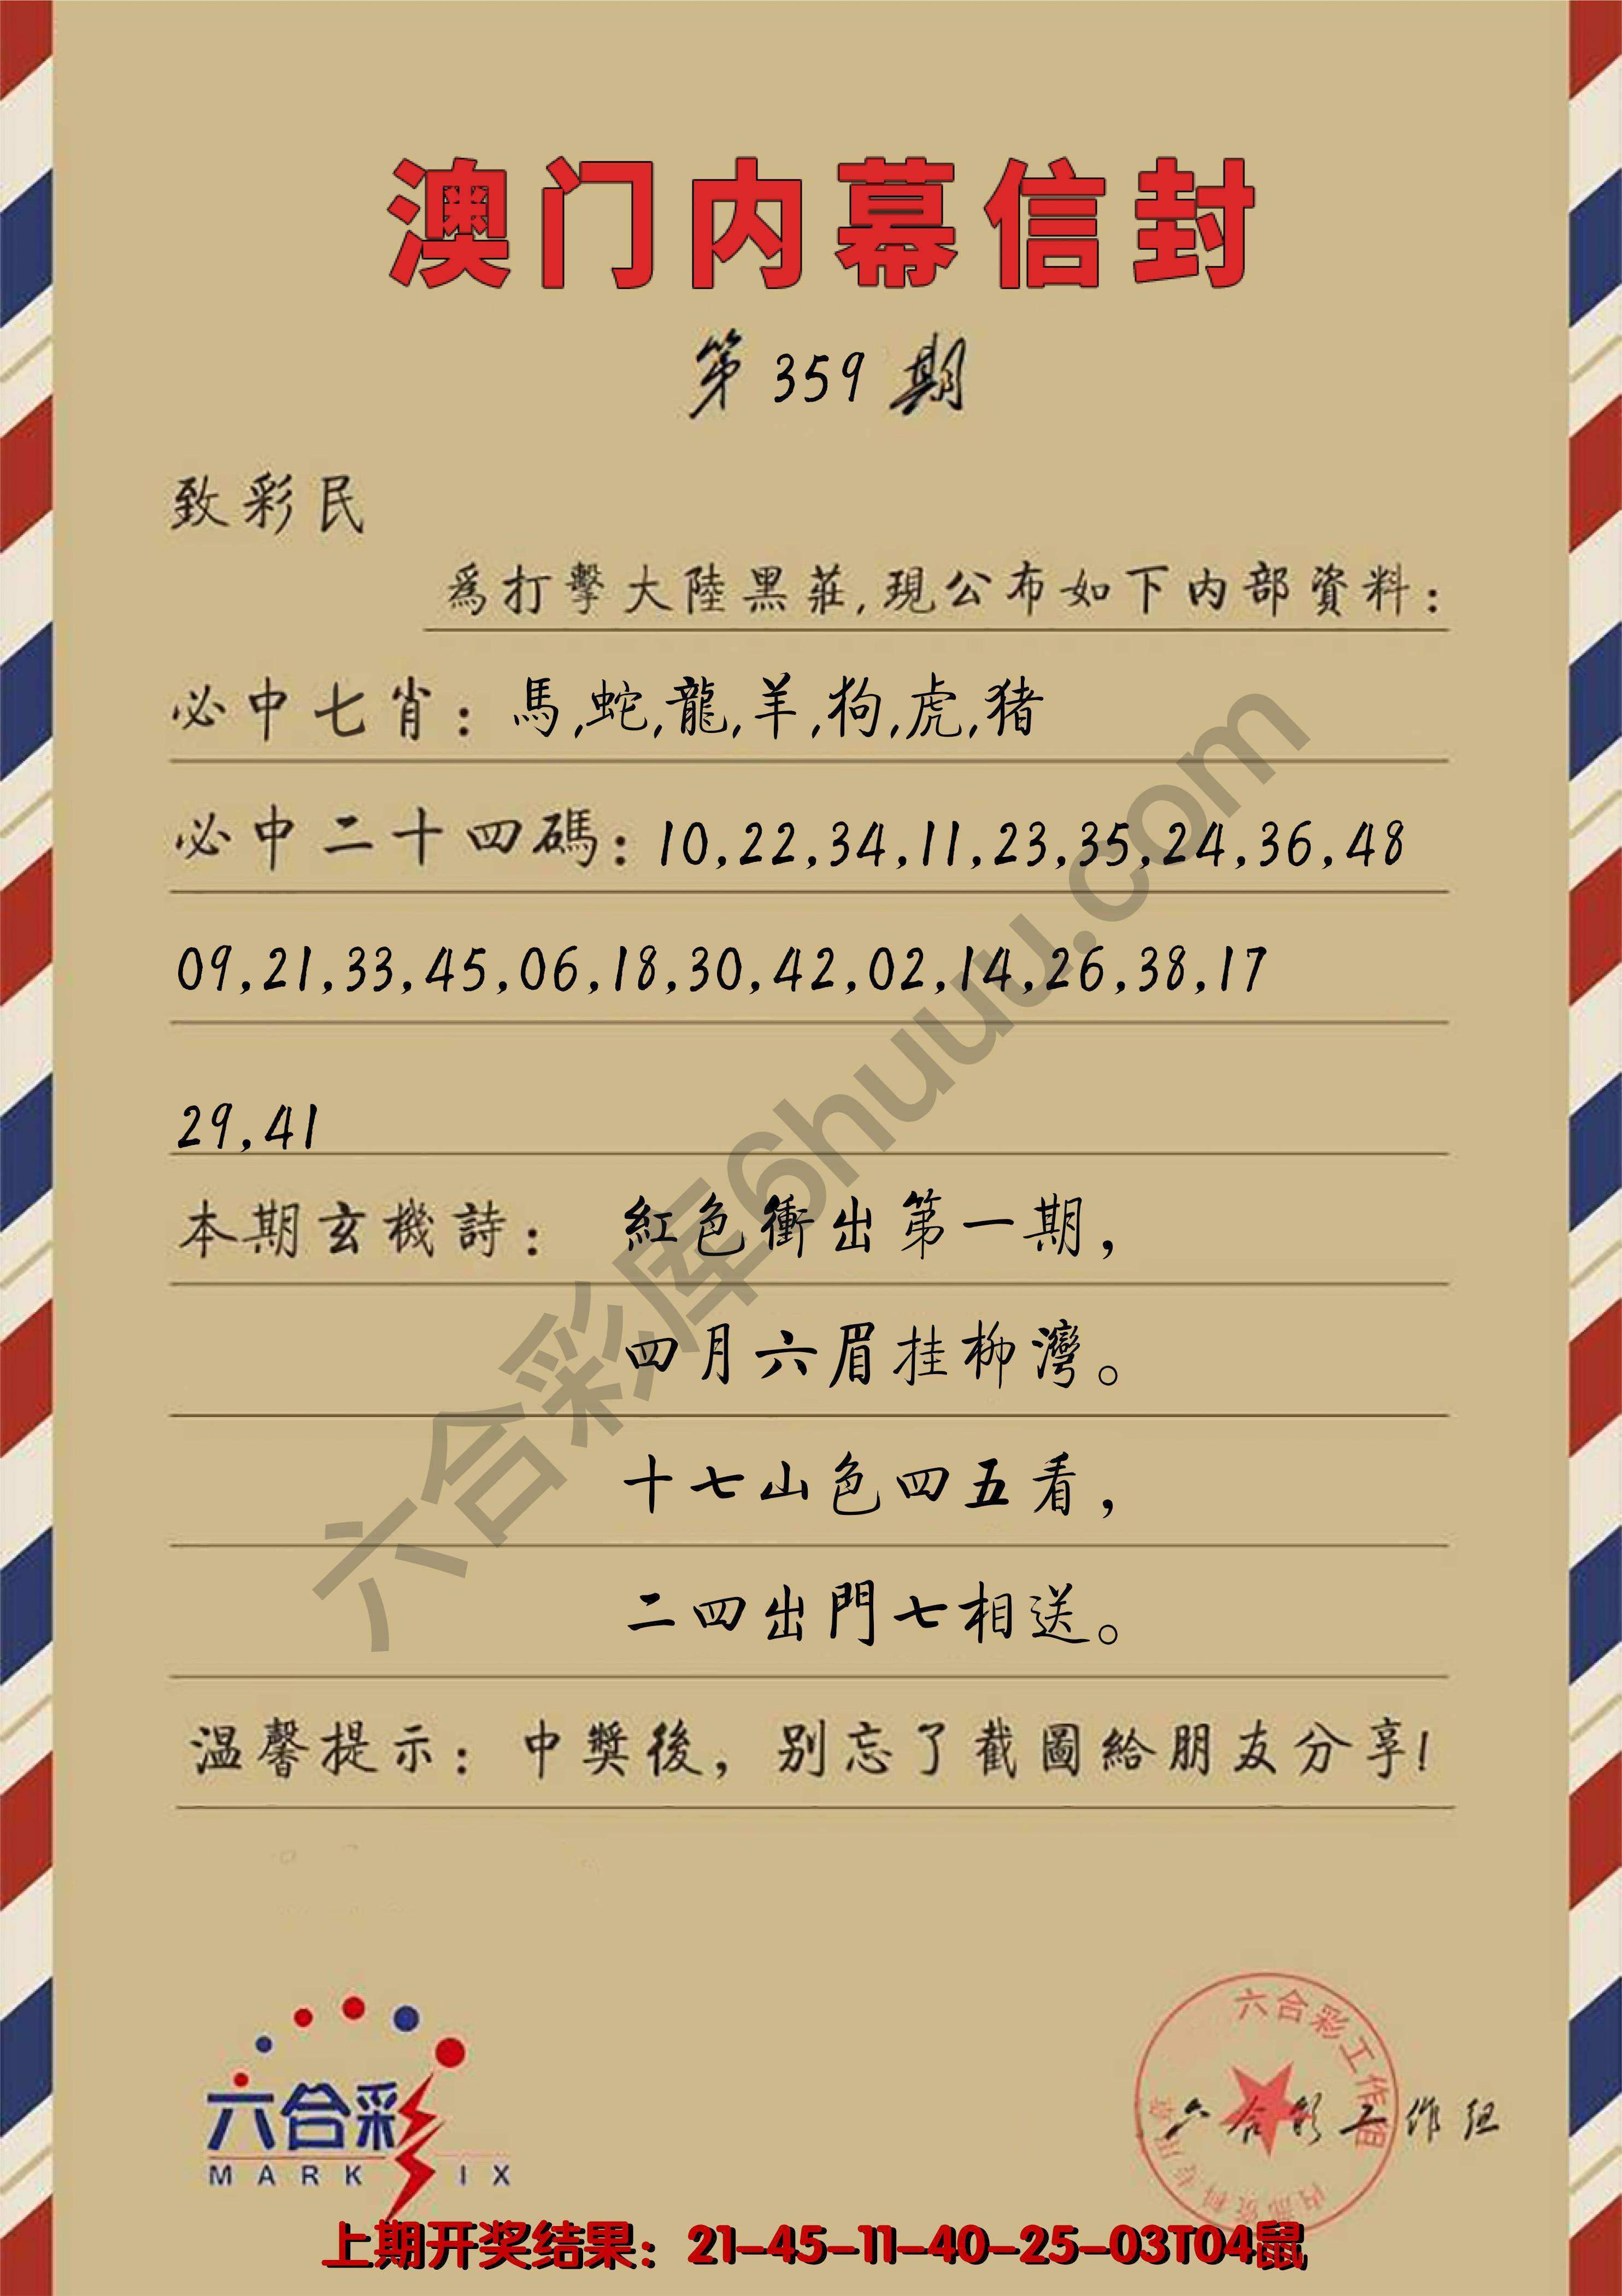 澳门内幕信封
第 359 期
致彩民
為打擊大陸黑莊,現公布如下内部資料:
必中七肖: 馬,蛇,龍,羊,狗,虎,猪
必中二十四碼: 10,22,34,11,23,35,24,36,48
09,21,33,45,06,18,30,42,02,14,26,38,17
29,41
本期玄機詩: 紅色衝出第一期,
四月六眉挂柳灣。
十七山色四五看,
二四出門七相送。
温馨提示: 中獎後, 别忘了截圖給朋友分享!
六合彩库6huuu.com
六合彩
MARK IX
六合彩工作组
内部资料专用章
六合彩工作组
上期开奖结果: 21-45-11-40-25-03T04鼠